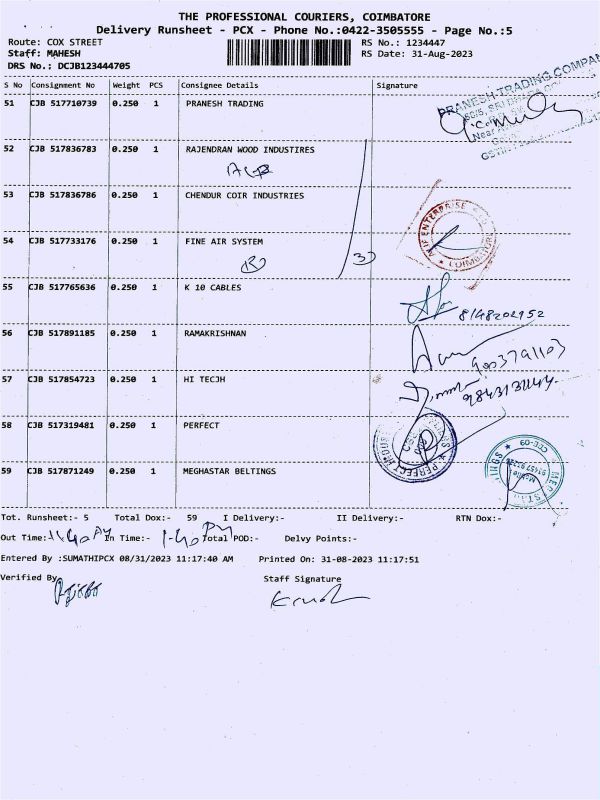 THE PROFESSIONAL COURIERS, COIMBATORE
Delivery Runsheet - PCX - Phone No.:0422-3505555 - Page No.:5
Route: COX STREET RS No.: 1234447
Staff: MAHESH RS Date: 31-Aug-2023
DRS No.: DCJB123444705
S No Consignment No Weight PCS Consignee Details Signature
51 CJB 517710739 0.250 1 PRANESH TRADING
PRANESH TRADING COMPANY
52 CJB 517836783 0.250 1 RAJENDRAN WOOD INDUSTIRES
53 CJB 517836786 0.250 1 CHENDUR COIR INDUSTRIES
54 CJB 517733176 0.250 1 FINE AIR SYSTEM
ENTERPRISE
COIMBATORE
55 CJB 517765636 0.250 1 K 10 CABLES
8148202952
56 CJB 517891185 0.250 1 RAMAKRISHNAN
9003791103
57 CJB 517854723 0.250 1 HI TECJH
58 CJB 517319481 0.250 1 PERFECT
PERFECT
59 CJB 517871249 0.250 1 MEGHASTAR BELTINGS
CEE-09
Tot. Runsheet:- 5 Total Dox:- 59 I Delivery:- II Delivery:- RTN Dox:-
Out Time: 11:40 In Time:- 1-40 PM Total POD:- Delvy Points:-
Entered By :SUMATHIPCX 08/31/2023 11:17:40 AM Printed On: 31-08-2023 11:17:51
Verified By Staff Signature